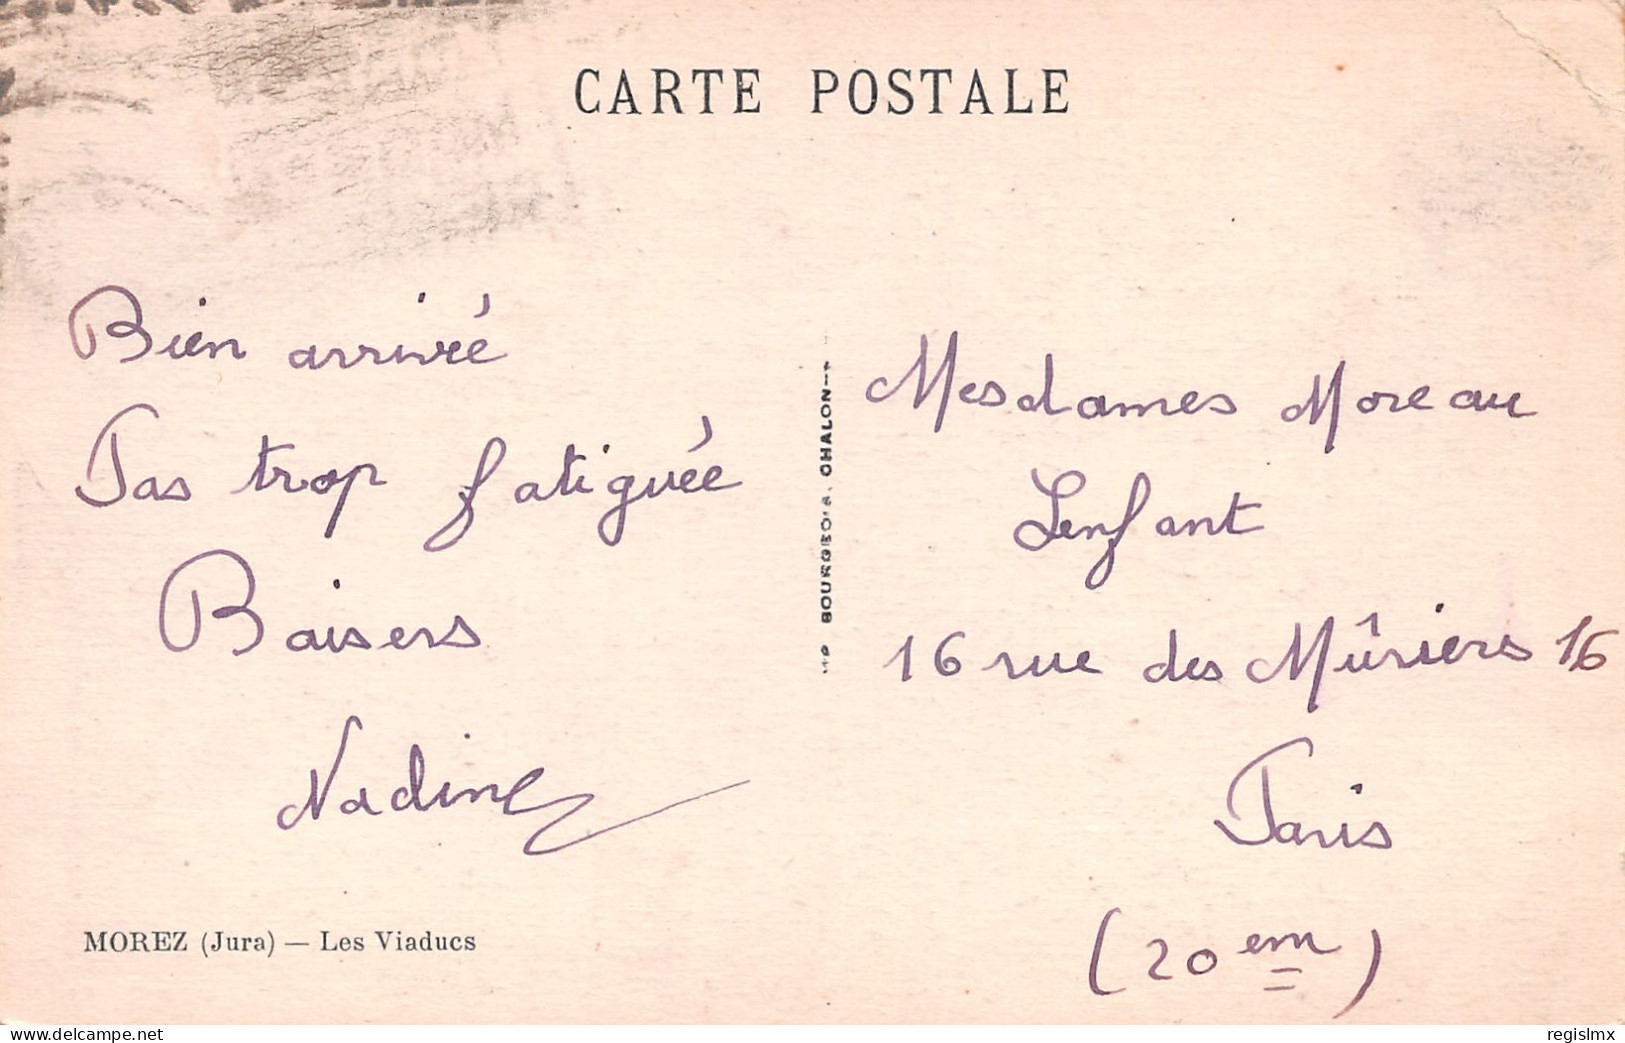 CARTE POSTALE
Bien arrivé
Pas trop fatiguée
Baisers
Nadine
MOREZ (Jura) — Les Viaducs
BOURGEOIS, CHALON
Mesdames Moreau
Lenfant
16 rue des Mûriers 16
Paris
(20em)
www.delcampe.net
regislmx